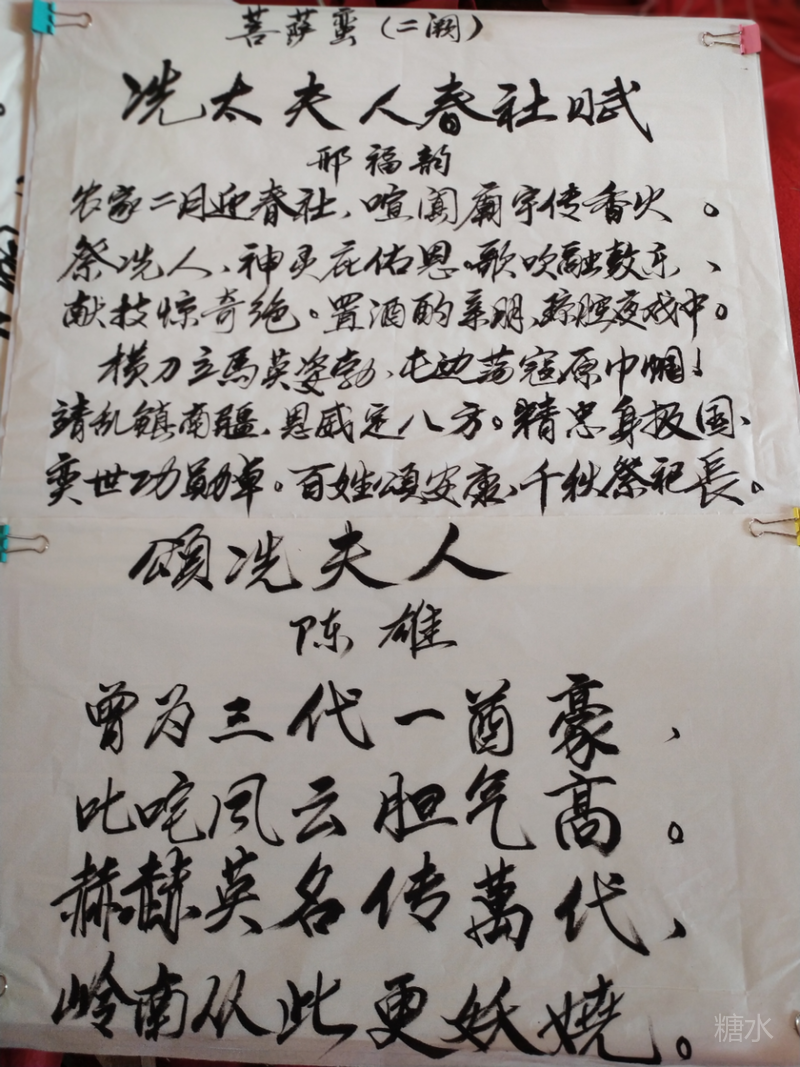 菩萨蛮（二阕）
冼太夫人春社赋
邢福韵
农家二月迎春社、喧闐廟宇传香火。
祭冼人、神灵庇佑恩。歌吹融鼓乐、
献技惊奇绝。置酒酌亲朋、琼胜夜戏中。
横刀立馬英姿勃、屯边荡寇原巾帼！
靖乱鎮南疆、恩威定八方。精忠身报国、
奕世功勋卓。百姓頌安康、千秋祭祀長。
頌冼夫人
陈雄
曾为三代一酋豪、
叱咤风云胆气高。
赫赫英名传萬代、
岭南从此更妖嬈。
糖水